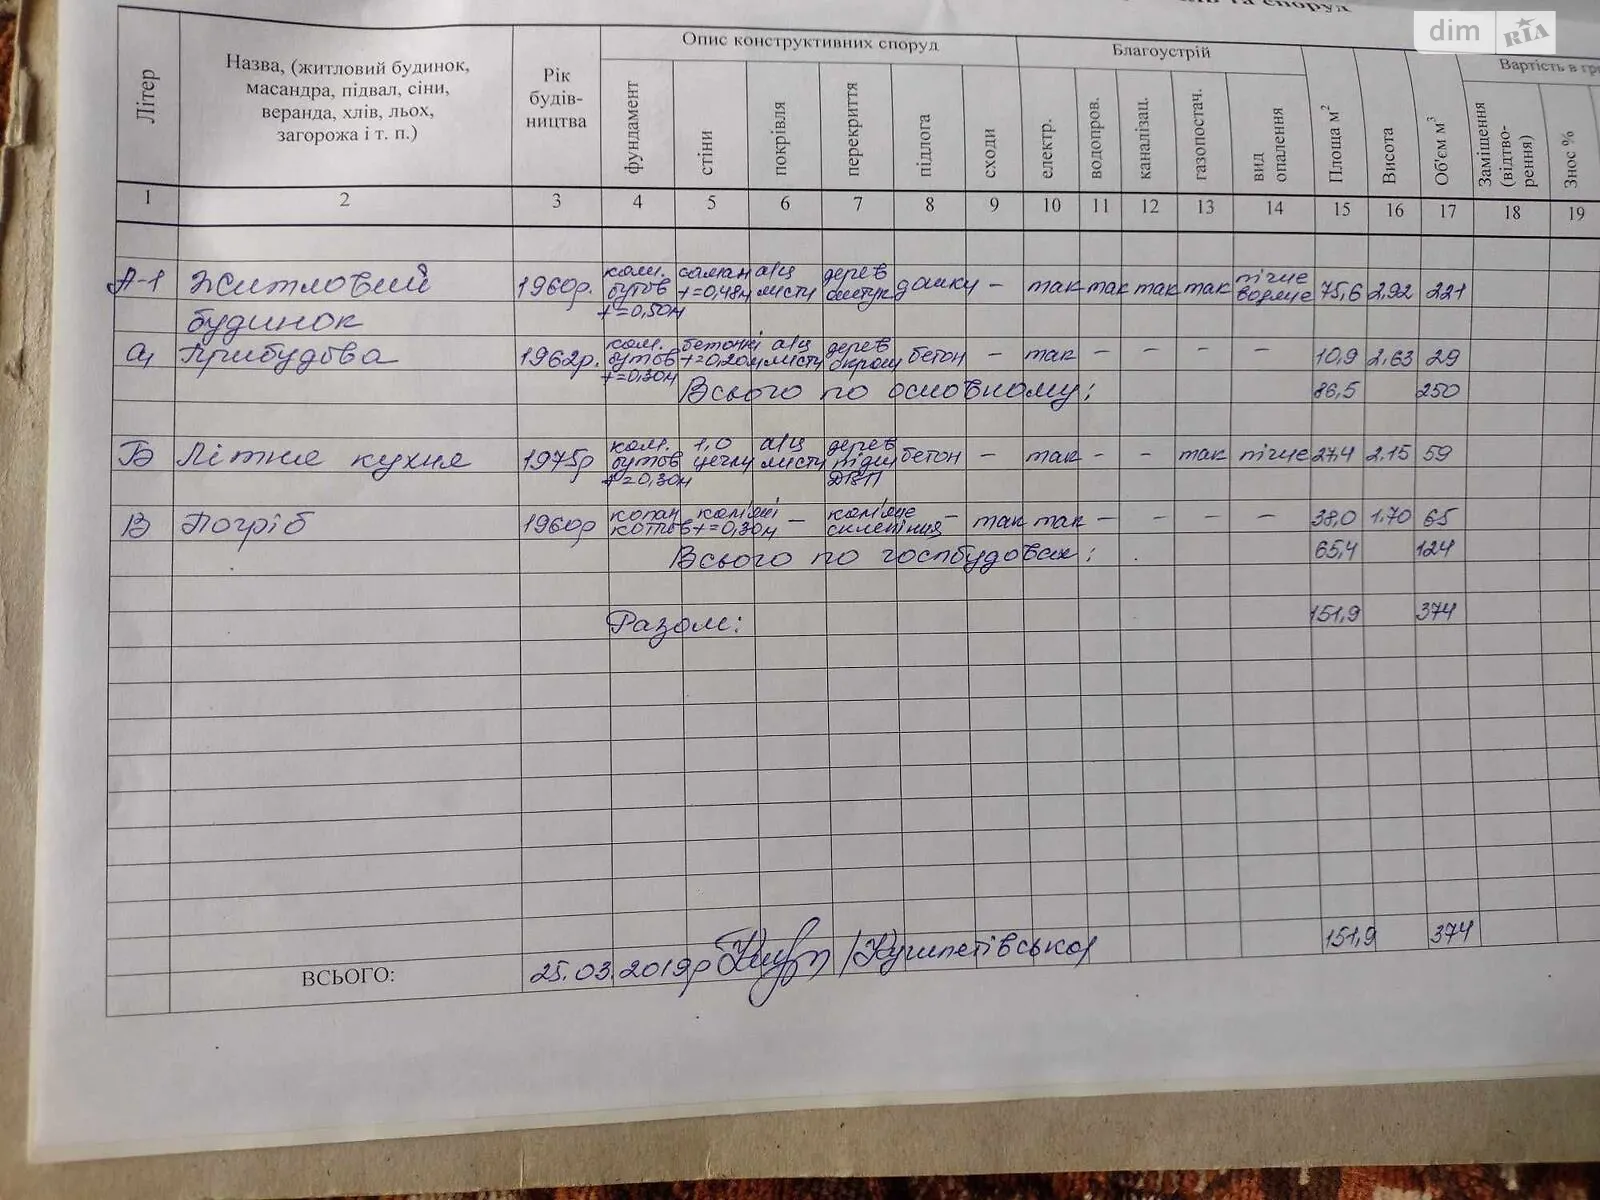 dim RIA
та споруд
Літер
Назва, (житловий будинок,
масандра, підвал, сіни,
веранда, хлів, льох,
загорожа і т. п.)
Рік
будів-
ництва
Опис конструктивних споруд
фундамент
стіни
покрівля
перекриття
підлога
сходи
Благоустрій
електр.
водопров.
каналізац.
газопостач.
вид
опалення
Площа м²
Висота
Об'єм м³
Вартість в гр
Заміщення
(відтво-
рення)
Знос %
1 2 3 4 5 6 7 8 9 10 11 12 13 14 15 16 17 18 19
А-1 Житловий 1960р. кам. саман а/ц дерев дошку - так так так так пічне 75,6 2,92 221
бутов t=0,48м листи водяне
t=0,50м
будинок
а₁ Прибудова 1962р. кам. бетонні а/ц дерев бетон - так - - - - 10,9 2,63 29
бутов t=0,20м листи
t=0,30м
Всього по основному: 86,5 250
Б Літня кухня 1975р кам. 1,0 а/ц дерев бетон - так - - так пічне 27,4 2.15 59
бутов цегли листи підш
t=0,30м ДВП
В Погріб 1960р копан кам'яні - кам'яне - так так - - - - 38,0 1.70 65
котлов t=0,30м склепіння
Всього по госпбудовах: 65,4 124
Разом: 151,9 374
151,9 374
ВСЬОГО: 25.03.2019р